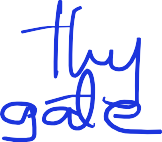 thy
gate